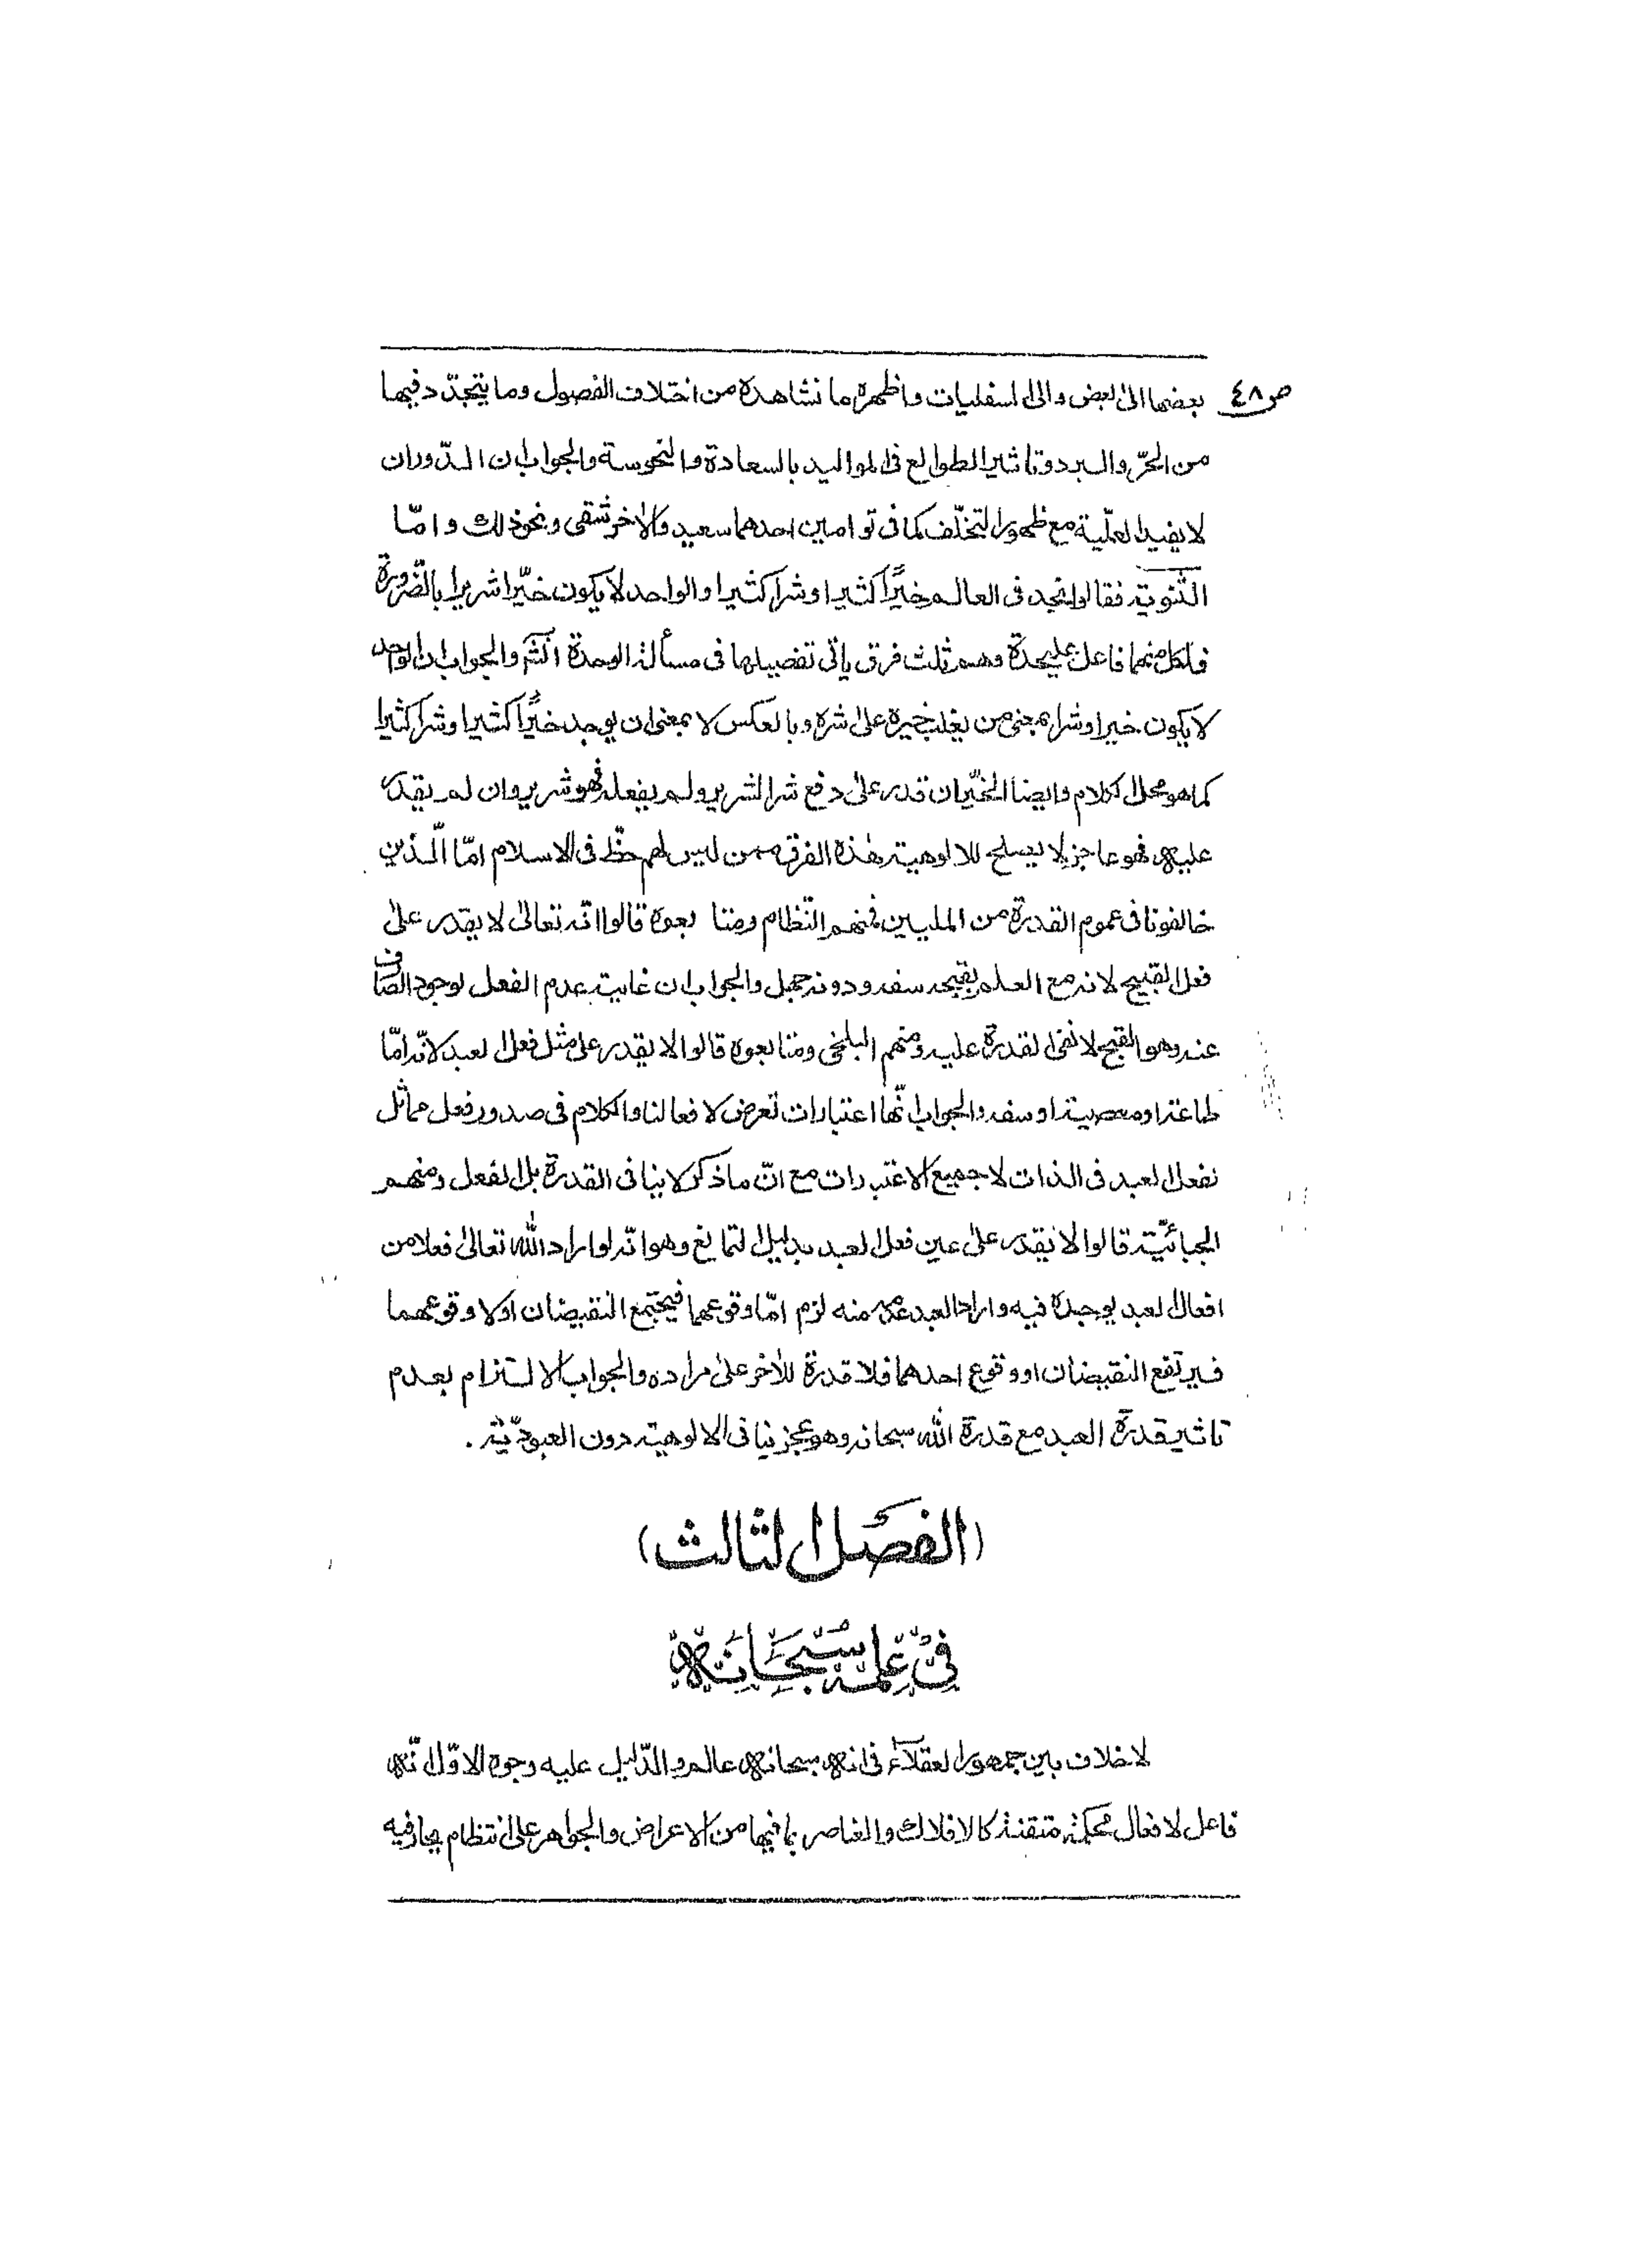 ص٤٨ بعضها الى بعض والى السفليات واظهره ما نشاهده من اختلاف الفصول وما يتجدّد فيها
من الحرّ والبرد وتاثير الطوالع فى المواليد بالسعادة والنحوسة والجواب ان الدّوران
لا يفيد العلّية مع ظهور التخلّف كما فى توامين احدهما سعيد والاخر شقى ونحو ذلك وامّا
الثّنويّة فقالوا نجد فى العالم خيرًا كثيرا وشرا كثيرا والواحد لا يكون خيّرا شريرا بالضّرورة
فلكل منهما فاعل عليحدة وهم ثلث فرق ياتى تفصيلها فى مسألة الوحدة انشم والجواب ان الواحد
لا يكون خيرا وشرا بمعنى من يغلب خيره على شره وبالعكس لا بمعنى ان يوجد خيرًا كثيرا وشرا كثيرا
كما هو محل الكلام وايضا الخيّر ان قدر على دفع شر الشرير ولم يفعله فهو شرير وان لم يقدر
عليه فهو عاجز لا يصلح للالوهية هذه الفرق ممن ليس لهم حظّ فى الاسلام امّا الّذين
خالفونا فى عموم القدرة من المليين فمنهم النّظام ومتا بعوه قالوا انّه تعالى لا يقدر على
فعل القبيح لانه مع العلم بقبحه سفه ودونه جهل والجواب ان غايته عدم الفعل لوجود الصّارف
عنه وهو القبح لا نفى القدرة عليه ومنهم البلخى ومتابعوه قالوا لا يقدر على مثل فعل العبد لانّه امّا
طاعة او معصية او سفه والجواب انّها اعتبارات تعرض لافعالنا والكلام فى صدور فعل مماثل
لفعل العبد فى الذات لا جميع الاعتبرات مع انّ ما ذكر لا ينافى القدرة بل الفعل ومنهم
الجبائيّة قالوا لا يقدر على عين فعل العبد بدليل التمانع وهو انّه لو اراد الله تعالى فعلا من
افعال العبد يوجده فيه واراد العبد عدمه منه لزم امّا وقوعهما فيجتمع النقيضان او لا وقوعهما
فيرتفع النقيضان او وقوع احدهما فلا قدرة للاخر على مراده والجواب الالتزام بعدم
تاثير قدرة العبد مع قدرة الله سبحانه وهو عجز ينافى الالوهية دون العبوديّة .
(الفصل الثالث)
فِىْ عِلْمِهِ سُبْحَانَهُ
لا خلاف بين جمهور العقلاء فى انه سبحانه عالم والدّليل عليه وجوه الاوّل انّه
فاعل لافعال محكمة متقنة كالافلاك والعناصر بما فيها من الاعراض والجواهر على انتظام يحار فيه